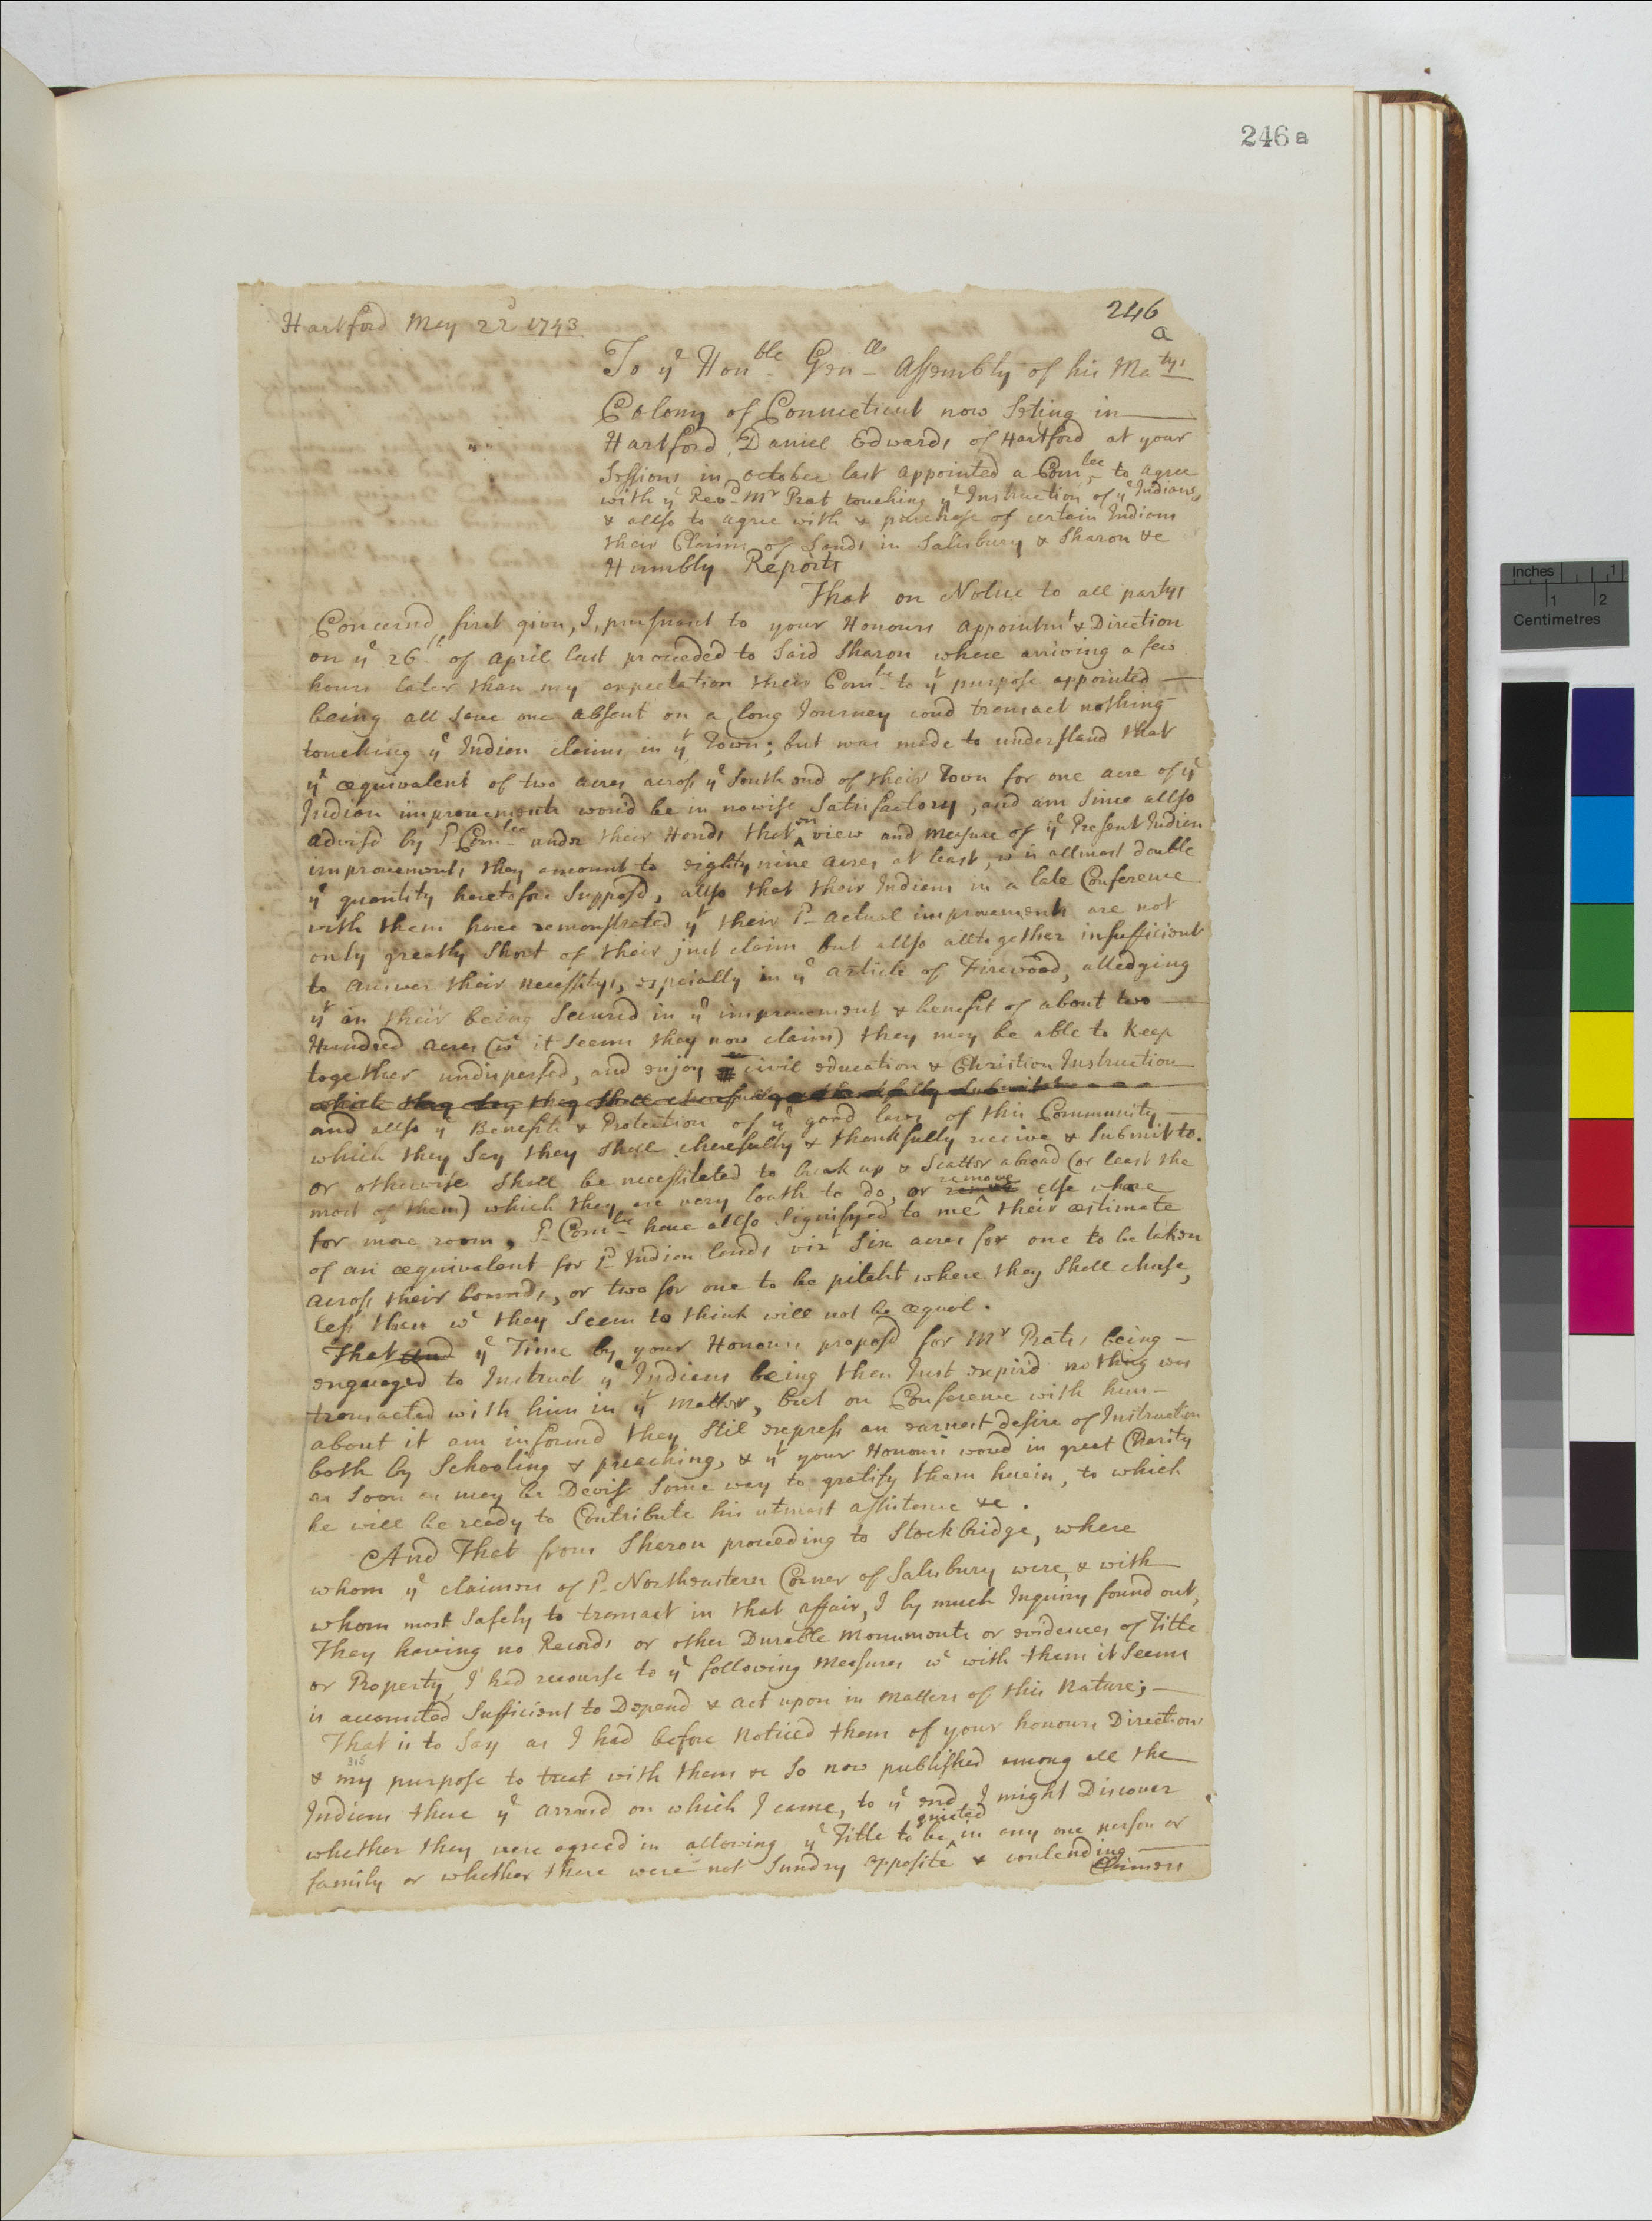 246 a
Hartford May 22d 1743
246
a
To ye Honble Genll Assembly of his Matys
Colony of Connecticut now Seting in
Hartford, Daniel Edwards of Hartford at your
Sessions in october last appointed a Comtee to agree
with ye Revd Mr Prat touching ye Instruction of ye Indians,
& allso to agree with & purchase of certain Indians
their Claims of Lands in Salisbury & Sharon &c
Humbly Reports
That on Notice to all partys
Concernd first given, I, pursuant to your Honours appointmt & Direction
on ye 26th of april last proceeded to Said Sharon where arriving a few
hours later than my expectation their Comtee to yt purpose appointed
being all save one absent on a long Journey coud transact nothing
touching ye Indian claims in yt Town; but was made to understand that
ye æquivalent of two acres across ye South end of their Town for one acre of ye
Indian improvements would be in nowise Satisfactory, and am Since allso
advisd by sd Comtee under their Hands that on view and measure of ye Present Indian
improvements they amount to eighty nine acres at least, wc is allmost double
ye quantity heretofore Supposd, allso that their Indians in a late Conference
with them have remonstrated yt their sd actual improvements are not
only greatly Short of their just claim but allso alltogether insufficient
to answer their necessitys, especially in ye article of Firewood, alledging
yt in their being Secured in ye improvement & benefit of about two
Hundred acres (wc it Seems they now claim) they may be able to keep
together undispersed, and enjoy a civil education & Christian Instruction
which they Say they Shall cherefully and thankfully Submit to
and allso ye Benefits & Protection of ye good laws of this Community
which they Say they Shall cherefully & thankfully receive & Submit to.
or otherwise Shall be necessitated to break up & Scatter abroad (or least the
most of them) which they are very loath to do, or remove remove else where
for more room, sd Comtee have allso Signifyed to me their æstimate
of an æquivalent for sd Indian lands vizt Six acres for one to be taken
across their bounds, or two for one to be pitcht where they Shall chuse,
less then wc they Seem to think will not be æqual.
That and ye Time by your Honours proposd for Mr Prats being
engaged to Instruct ye Indians being then Just expir'd nothing was
transacted with him in yt Matter, but on Conference with him
about it am informd they Stil express an earnest desire of Instruction
both by Schooling & preaching, & yt your Honours woud in great Charity
as Soon as may be Devise Some way to gratify them herein, to which
he will be ready to Contribute his utmost assistance &c.
And That from Sharon proceeding to Stockbridge, where
whom ye claimers of sd Northeastern Corner of Salisbury were, & with
whom most Safely to transact in that affair, I by much Inquiry found out,
They having no Records or other Durable Monuments or evidences of Title
or Property, I had recourse to ye following Measures wc with them it Seems
is accounted Sufficient to Depend & act upon in Matters of this Nature;
That is to Say as I had before Noticed them of your honours Directions
315
& my purpose to treat with them &c So now published among all the
Indians there ye arrand on which I came, to ye end I might Discover
whether they were agreed in allowing ye Title to be quieted in any one person or
family or whether there were not Sundry opposite & contending
Claimers
Inches 1
Centimetres 1 2